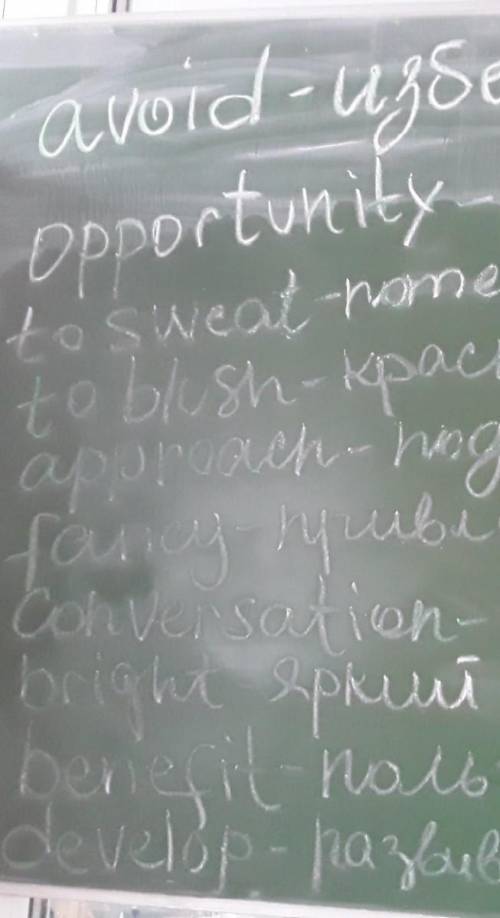 avoid - избе
opportunity -
to sweat - поте
to blush - крас
approach - под
fancy -
conversation -
bright яркий
benefit - поль
develop - разви